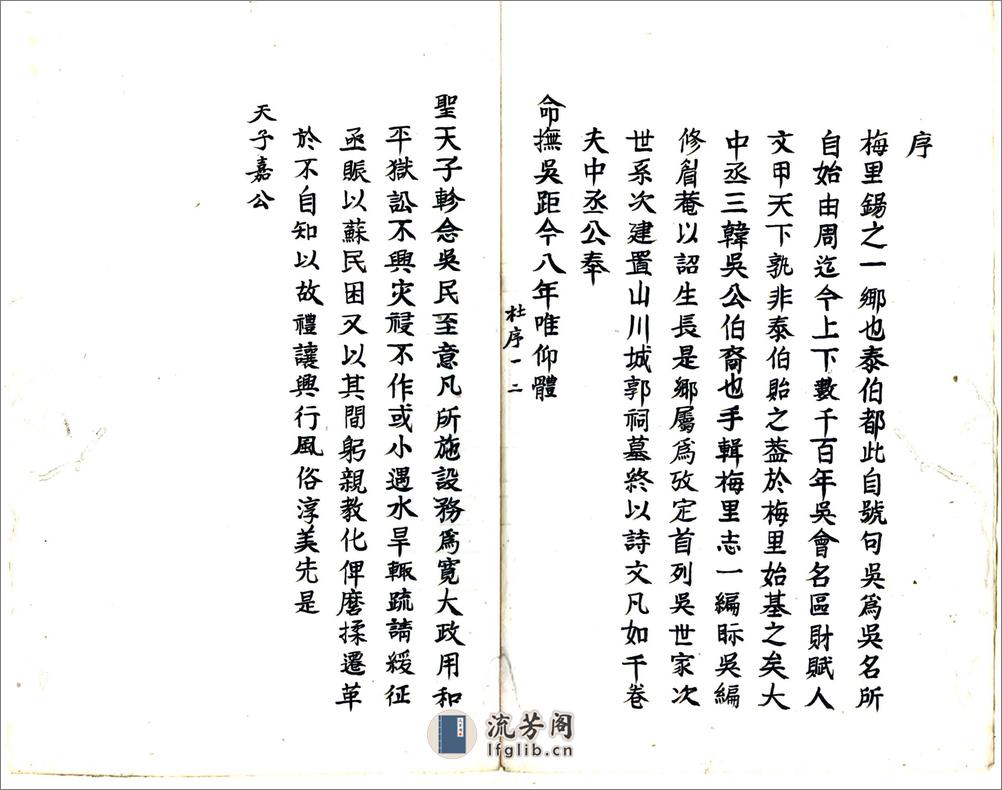 序
梅里錫之一鄉也泰伯都此自號句吳爲吳名所
自始由周迄今上下數千百年吳會名區財賦人
文甲天下孰非泰伯貽之葢於梅里始基之矣大
中丞三韓吳公伯裔也手輯梅里志一編眎吳編
修眉菴以詔生長是鄉屬爲攷定首列吳世家次
世系次建置山川城郭祠墓終以詩文凡如千卷
夫中丞公奉
命撫吳距今八年唯仰體
杜序一 二
聖天子軫念吳民至意凡所施設務爲寬大政用和
平獄訟不興灾祲不作或小遇水旱輒疏請緩征
亟賑以蘇民困又以其間躬親教化俾麿揉遷革
於不自知以故禮讓興行風俗淳美先是
天子嘉公
流芳阁
lfglib.cn